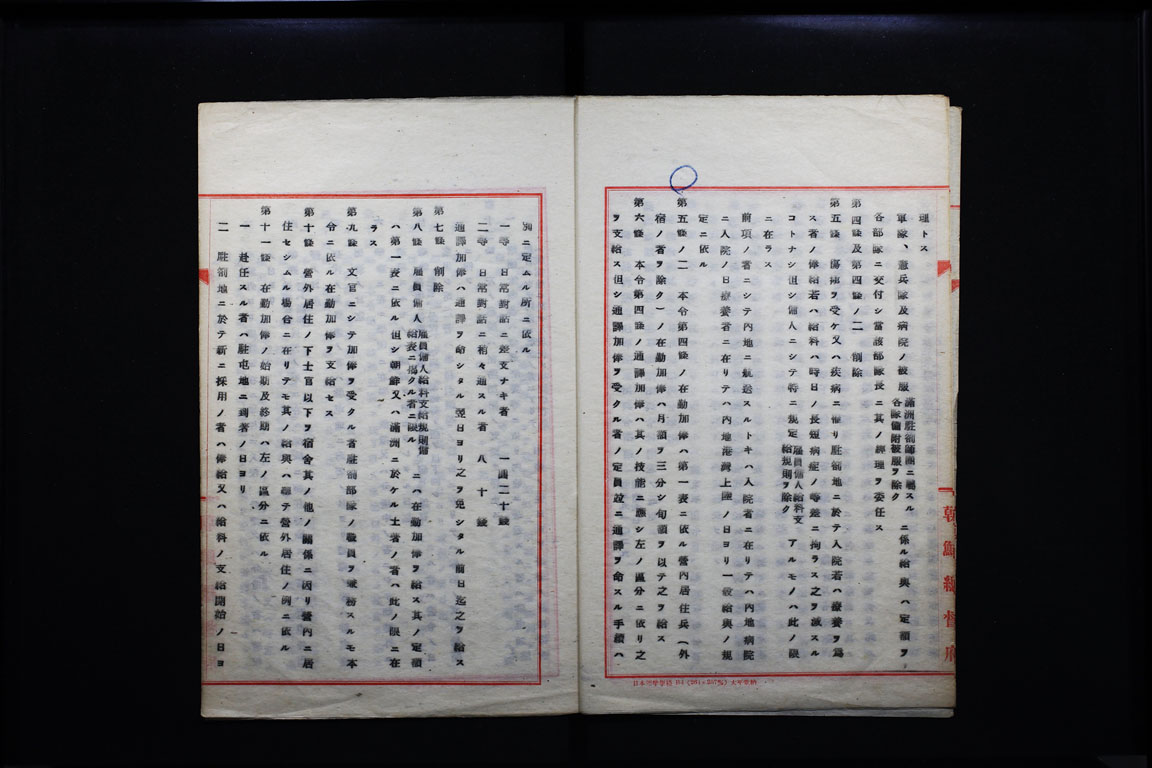 理トス
軍隊、憲兵隊及病院ノ被服
滿洲駐劄師團ニ屬スル
各隊備附被服ヲ除ク
ニ係ル給與ハ定額ヲ
各部隊ニ交付シ當該部隊長ニ其ノ經理ヲ委任ス
第四條及第四條ノ二 削除
第五條 傷痍ヲ受ケ又ハ疾病ニ罹リ駐劄地ニ於テ入院若ハ療養ヲ爲
ス者ノ俸給若ハ給料ハ時日ノ長短病症ノ等差ニ拘ラス之ヲ減スル
コトナシ但シ傭人ニシテ特ニ規定
雇員傭人給料支
給規則ヲ除ク
アルモノハ此ノ限
ニ在ラス
前項ノ者ニシテ内地ニ航送スルトキハ入院者ニ在リテハ内地病院
ニ入院ノ日療養者ニ在リテハ内地港灣上陸ノ日ヨリ一般給與ノ規
定ニ依ル
第五條ノ二 本令第四條ノ在勤加俸ハ第一表ニ依ル營内居住兵(外
宿ノ者ヲ除ク)ノ在勤加俸ハ月額ヲ三分シ旬額ヲ以テ之ヲ給ス
第六條 本令第四條ノ通譯加俸ハ其ノ技能ニ應シ左ノ區分ニ依リ之
ヲ支給ス但シ通譯加俸ヲ受クル者ノ定員竝ニ通譯ヲ命スル手續ハ
別ニ定ムル所ニ依ル
一等 日常對話ニ差支ナキ者 一圓二十錢
二等 日常對話ニ稍々通スル者 八十錢
通譯加俸ハ通譯ヲ命シタル翌日ヨリ之ヲ免シタル前日迄之ヲ給ス
第七條 削除
第八條 雇員傭人
雇員傭人給料支給規則備
給表ニ揭クル者ニ限ル
ニハ在勤加俸ヲ給ス其ノ定額
ハ第一表ニ依ル但シ朝鮮又ハ滿洲ニ於ケル土著ノ者ハ此ノ限ニ在
ラス
第九條 文官ニシテ加俸ヲ受クル者駐劄部隊ノ職員ヲ兼務スルモ本
令ニ依ル在勤加俸ヲ支給セス
第十條 營外居住ノ下士官以下ヲ宿舍其ノ他ノ關係ニ因リ營内ニ居
住セシムル場合ニ在リテモ其ノ給與ハ總テ營外居住ノ例ニ依ル
第十一條 在勤加俸ノ始期及終期ハ左ノ區分ニ依ル
一 赴任スル者ハ駐屯地ニ到著ノ日ヨリ
二 駐劄地ニ於テ新ニ採用ノ者ハ俸給又ハ給料ノ支給開始ノ日ヨ
朝鮮總督府